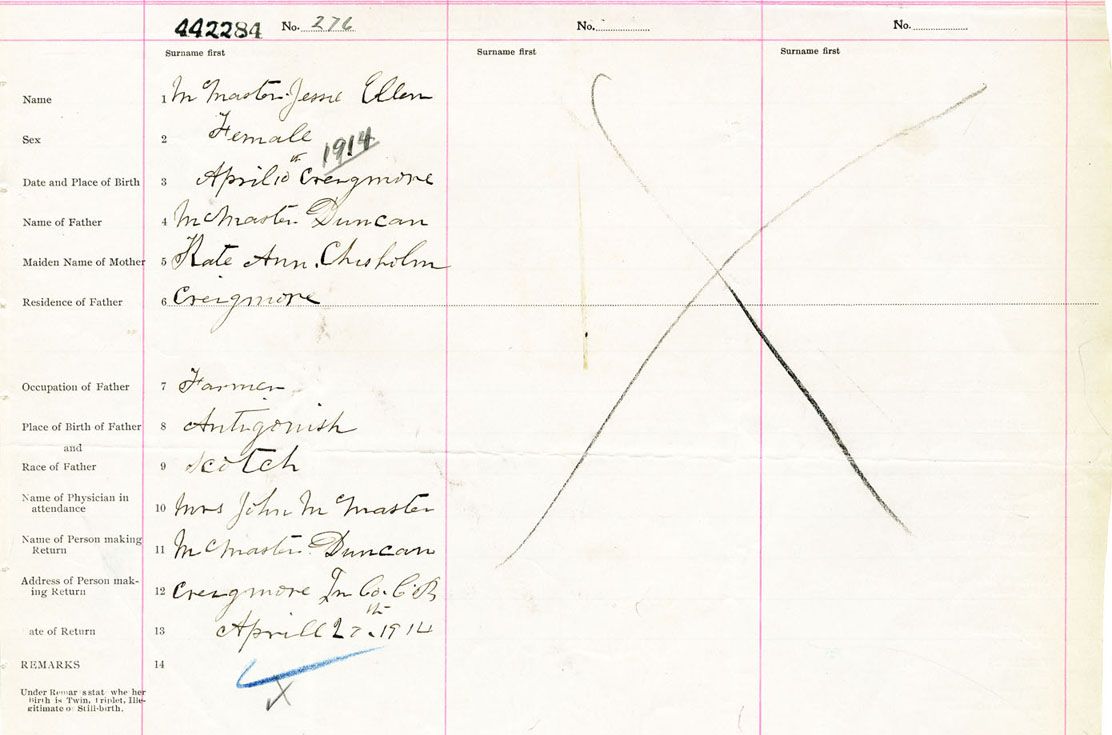 442284 No. 276 No. No.
Surname first Surname first Surname first
Name 1 McMaster Jessie Ellen
Sex 2 Female
1914
Date and Place of Birth 3 April 10th Creigmore
Name of Father 4 McMaster Duncan
Maiden Name of Mother 5 Kate Ann. Chisholm
Residence of Father 6 Creigmore
Occupation of Father 7 Farmer
Place of Birth of Father 8 Antigonish
and
Race of Father 9 Scotch
Name of Physician in
attendance 10 Mrs John McMaster
Name of Person making
Return 11 McMaster Duncan
Address of Person mak-
ing Return 12 Creigmore In Co. C.B
ate of Return 13 Aprill 27th 1914
REMARKS 14
Under Remar s stat whe her
Birth is Twin, Triplet, Ille-
gitimate o Still-birth.